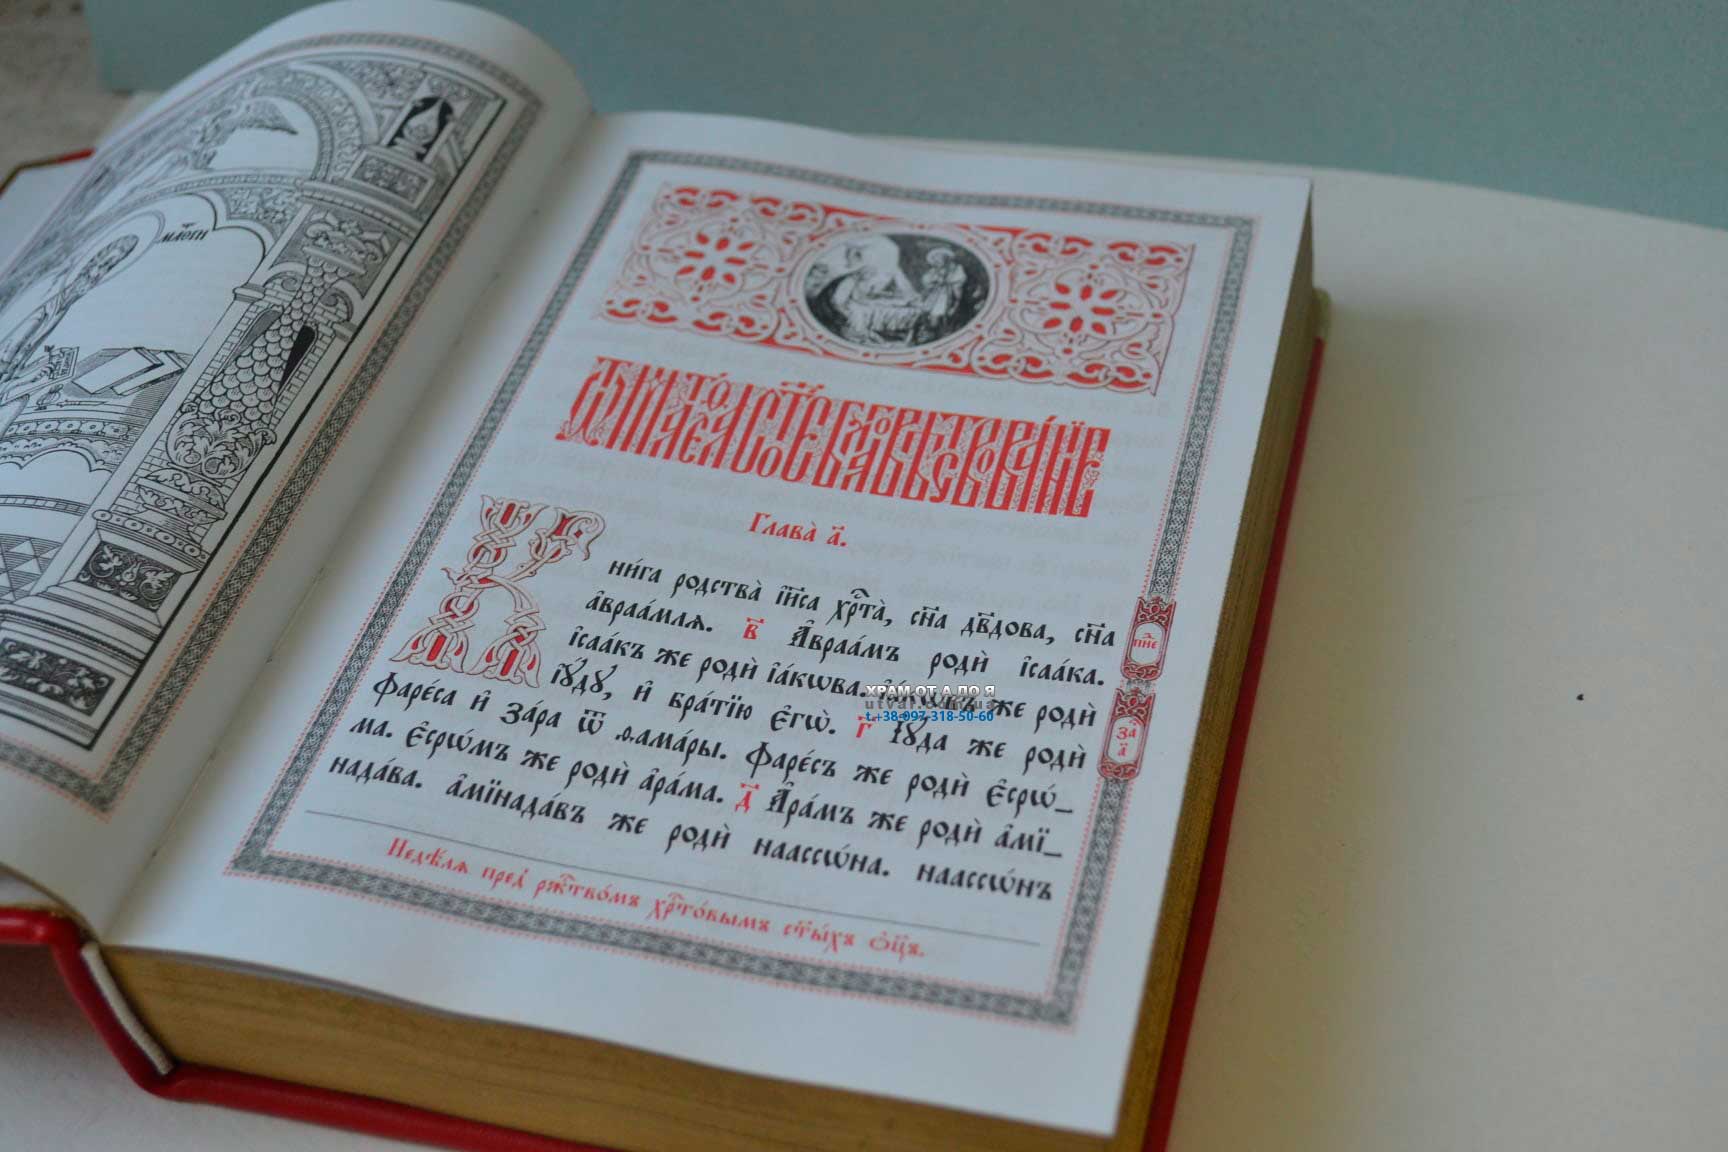 Ѿ матѳеа свѧтое бл҃говѣствованїе
Глава̀ а҃.
Кни́га родства̀ і҆и҃са хрⷭ҇та̀, сн҃а дв҃дова, сн҃а
а҆враа́млѧ. в҃ А҆враа́мъ родѝ і҆саа́ка.
і҆саа́къ же родѝ і҆а́кѡва. і҆а́кѡвъ же родѝ
і҆ꙋ́дꙋ, и҆ бра́тїю є҆гѡ̀. г҃ І҆ꙋ́да же родѝ
Фаре́са и҆ За́ра ѿ ѳ.ама́ры. Фаре́съ же родѝ є҆срѡ́_
ма. є҆срѡ́мъ же родѝ а҆ра́ма. д҃ А҆ра́мъ же родѝ а҆мї_
нада́ва. а҆мїнада́въ же родѝ наассѡ́на. наассѡ́нъ
Недѣ́лѧ пред̾ ржⷭ҇тво́мъ хрⷭ҇то́вымъ ст҃ы́хъ ѻ҆ц҃ъ.
За
а҃
ХРАМ ОТ А ДО Я
utvar.com.ua
t.+38-097-318-50-60